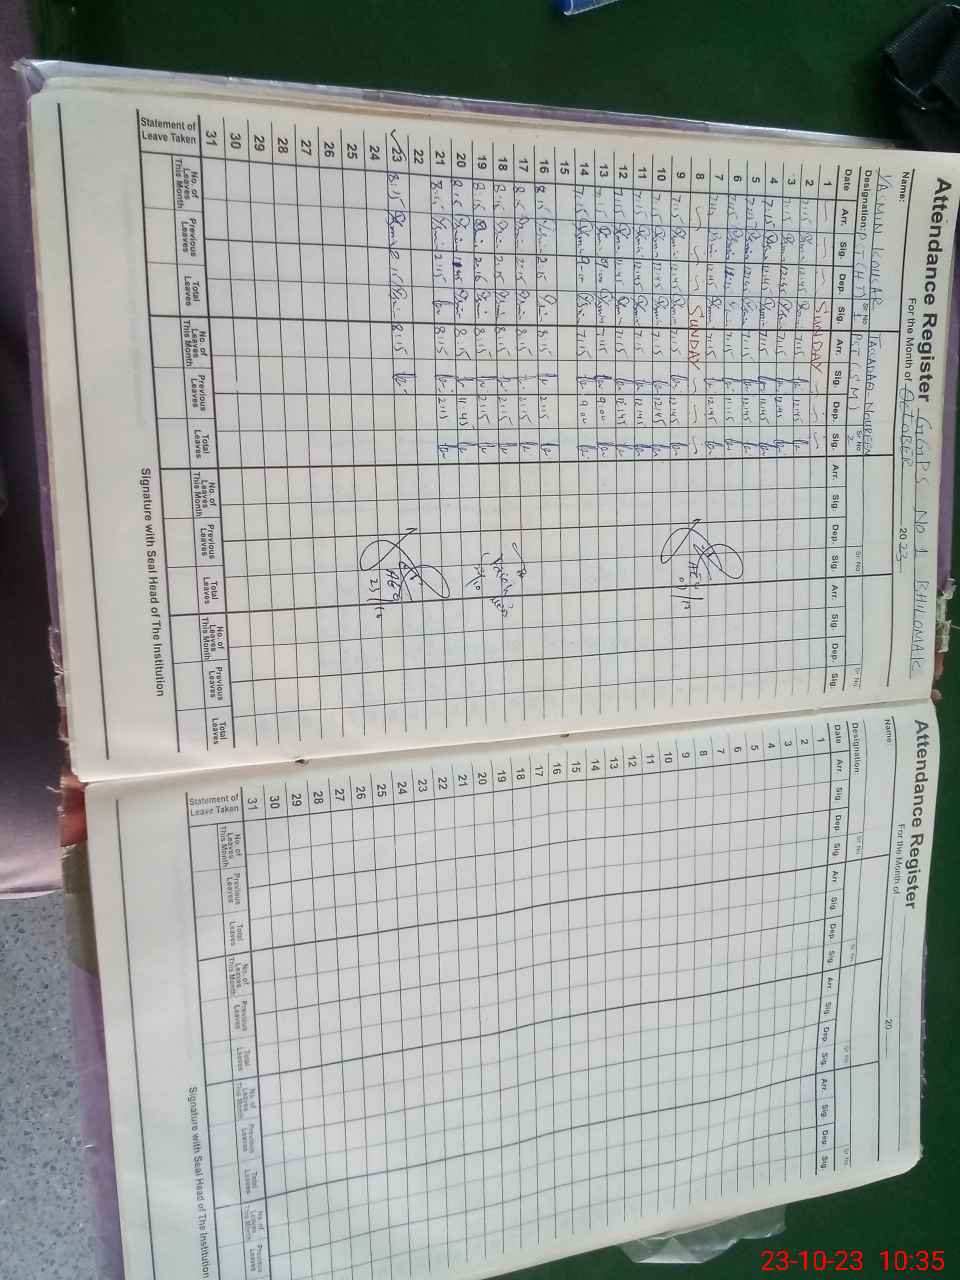 Attendance Register G.G.P.S No 1 BHILOMAR
For the Month of OCTOBER 2023
Name: YASMIN KOUSAR TASSADAQ NOUREEN
Designation: PST (HT) Sr No 1 PST (SM) Sr No 2 Sr No Sr No
Date Arr. Sig. Dep. Sig. Arr. Sig. Dep. Sig. Arr. Sig. Dep. Sig. Arr. Sig. Dep. Sig.
1 SUNDAY
2 7:15 12:45 7:15 12:45
3 7:15 12:45 7:15 12:45
4 7:15 12:45 7:15 12:45
5 7:15 12:45 7:15 12:45
6 7:15 7:15 11:15
7 7:15 12:45 7:15 12:45
8 SUNDAY
9 7:15 12:45 7:15 12:45
10 7:15 12:45 7:15 12:45
11 7:15 12:45 7:15 12:45
12 7:15 7:15 12:45
13 7:15 7:15 9:00
14 7:15 7:15 9:00
15
16 8:15 2:15 8:15 2:15
17 8:15 2:15 8:15 2:15
18 8:15 2:15 8:15 2:15
19 8:15 2:15 8:15 2:15
20 8:15 11:45 8:15 11:45
21 8:15 2:15 8:15 2:15
22
23 8:15 2:15 8:15
24
25
26
27
28
29
30
31
Statement of Leave Taken
No. of Leaves This Month Previous Leaves Total Leaves No. of Leaves This Month Previous Leaves Total Leaves No. of Leaves This Month Previous Leaves Total Leaves No. of Leaves This Month Previous Leaves Total Leaves
Signature with Seal Head of The Institution
AEO
AEO
23/10
Attendance Register
For the Month of 20
Name:
Designation: Sr No Sr No Sr No Sr No
Date Arr. Sig. Dep. Sig. Arr. Sig. Dep. Sig. Arr. Sig. Dep. Sig. Arr. Sig. Dep. Sig.
1
2
3
4
5
6
7
8
9
10
11
12
13
14
15
16
17
18
19
20
21
22
23
24
25
26
27
28
29
30
31
Statement of Leave Taken
No. of Leaves This Month Previous Leaves Total Leaves No. of Leaves This Month Previous Leaves Total Leaves No. of Leaves This Month Previous Leaves Total Leaves No. of Leaves This Month Previous Leaves
Signature with Seal Head of The Institution
23-10-23 10:35